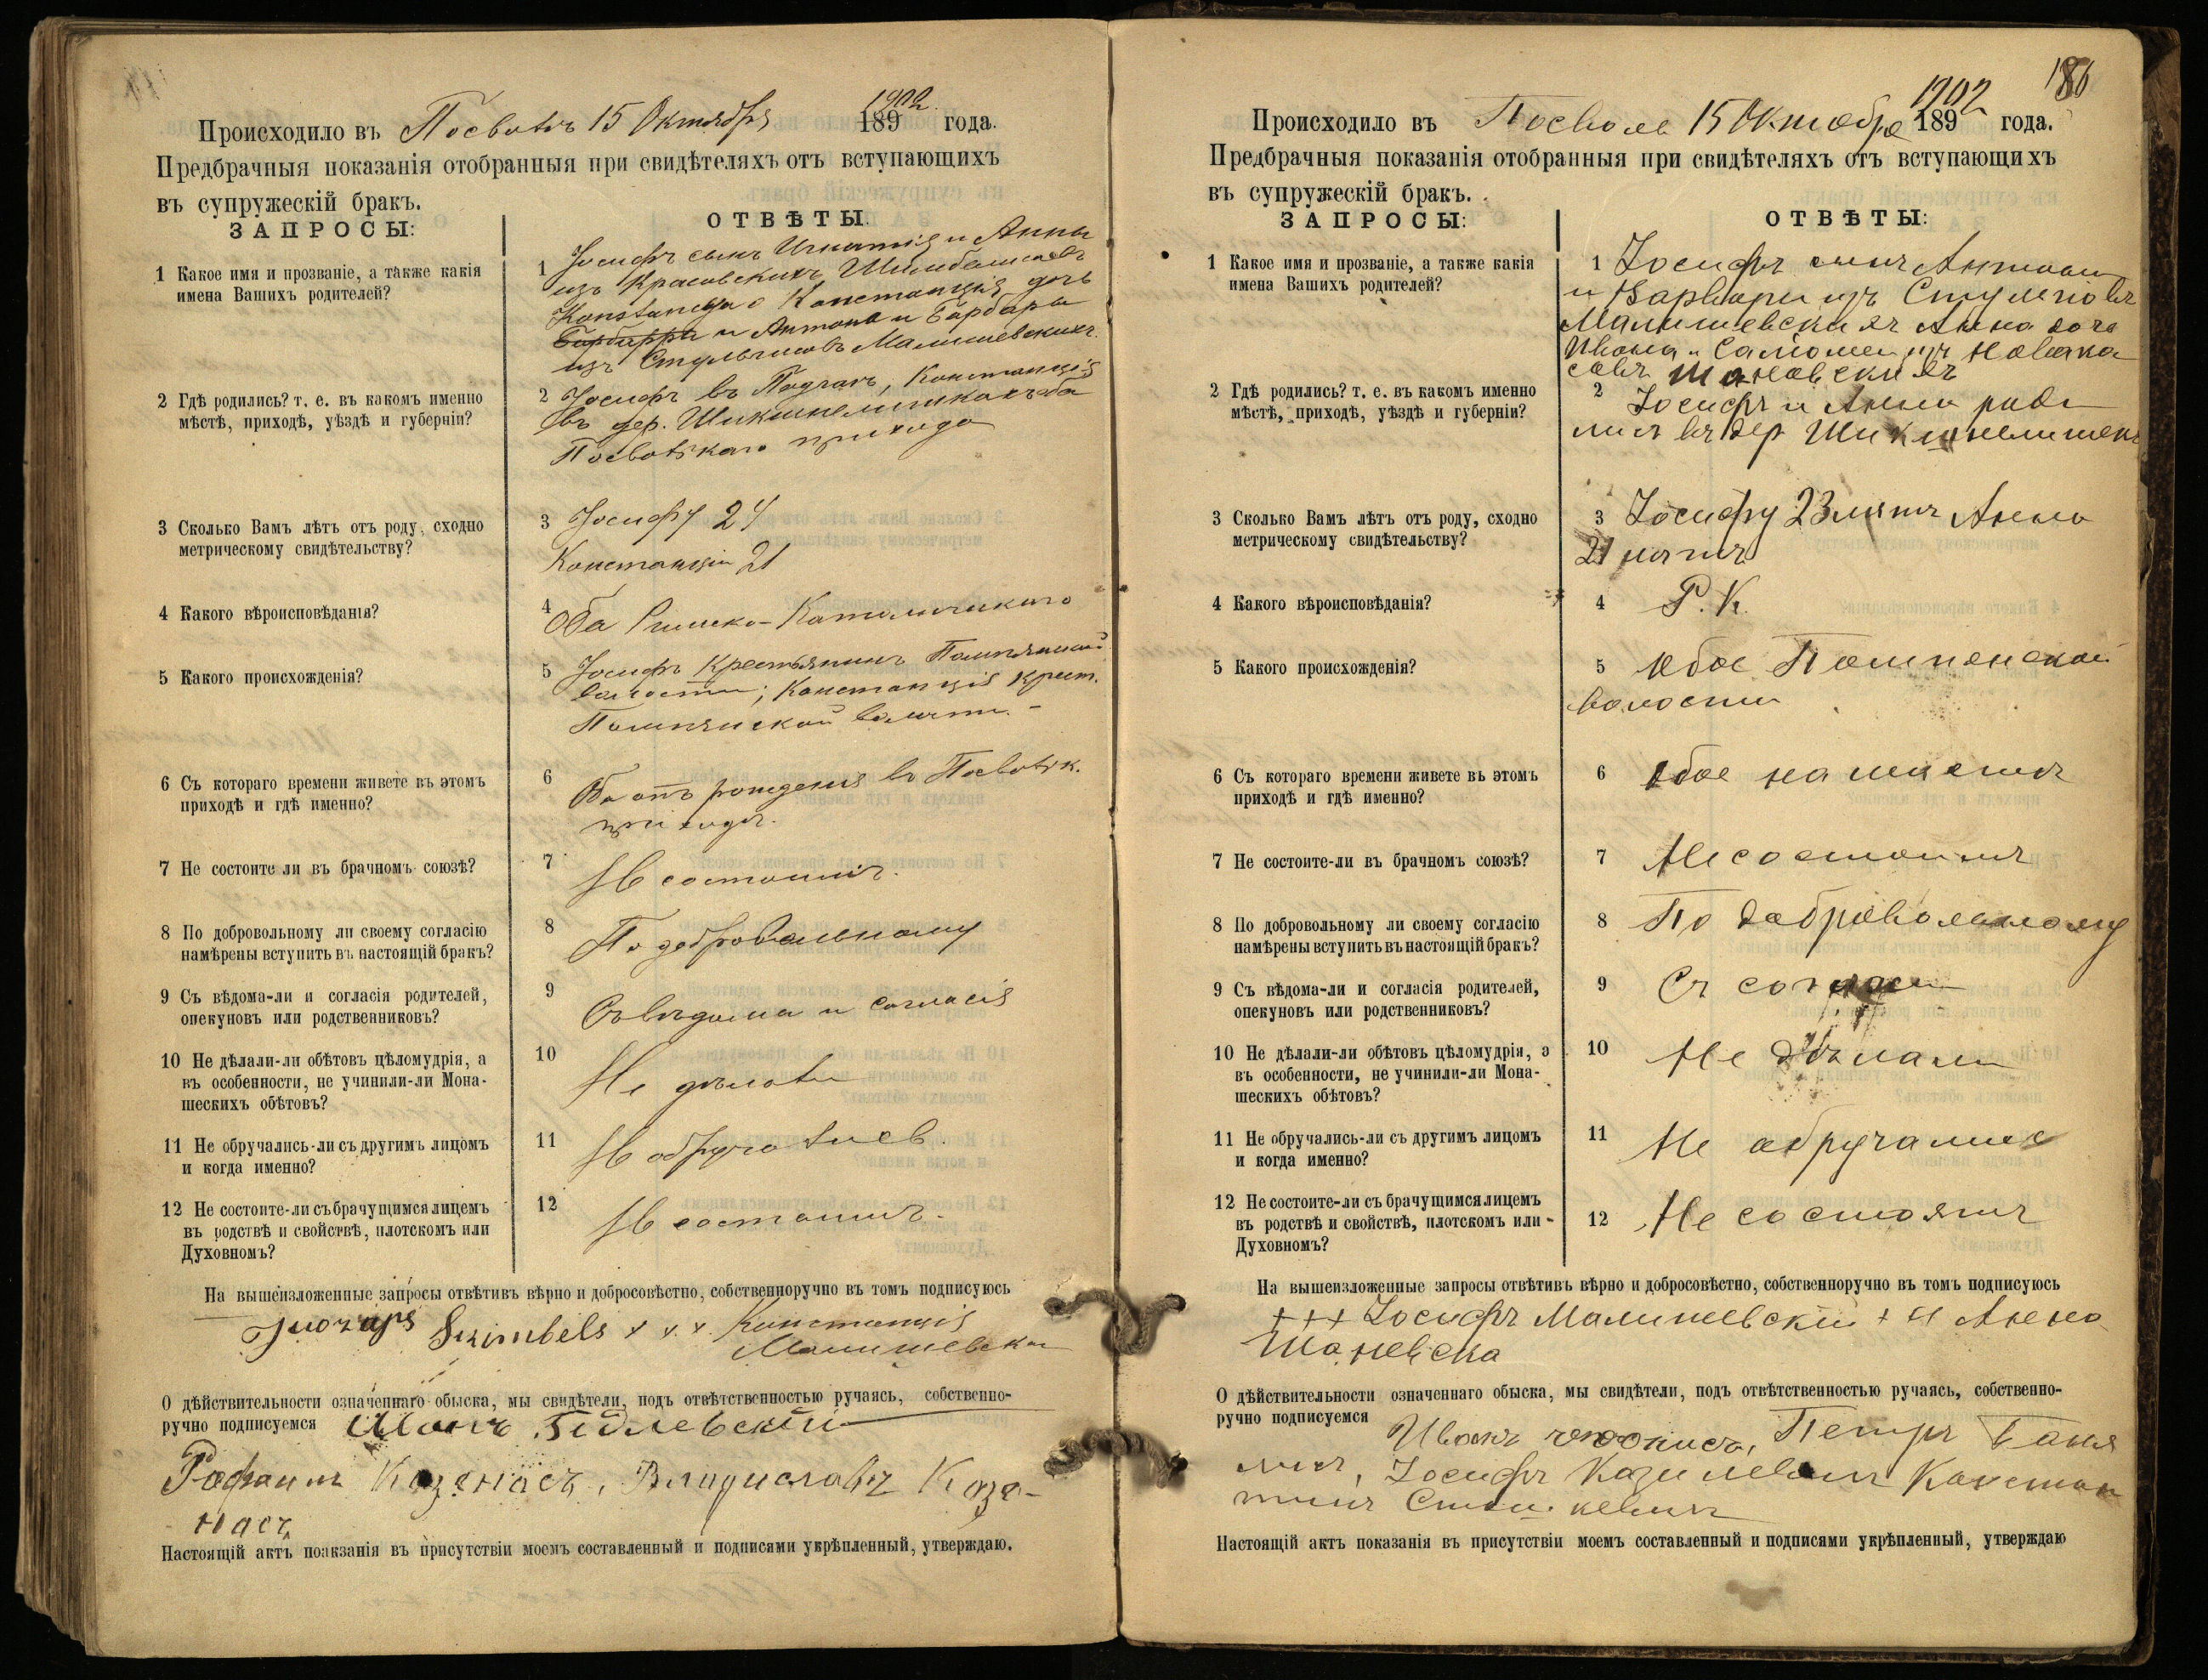 Происходило въ Посволѣ 15 Октября 1902 189 года.
Предбрачныя показанія отобранныя при свидѣтеляхъ отъ вступающихъ
въ супружескій бракъ.
ЗАПРОСЫ:
ОТВѢТЫ.
1 Какое имя и прозваніе, а также какія
имена Вашихъ родителей?
1 Іосифъ сынъ Игнатія и Анны
изъ Красовскихъ
Konstancya Констанція дочь
Барбары и Антона и Барбары
изъ Малишевскихъ.
2 Гдѣ родились? т. е. въ какомъ именно
мѣстѣ, приходѣ, уѣздѣ и губерніи?
2 Іосифъ въ Констанція
въ дер. Шикшнелишкахъ оба
прихода
3 Сколько Вамъ лѣтъ отъ роду, сходно
метрическому свидѣтельству?
3 Іосифу 24
Констанціи 21
4 Какого вѣроисповѣданія?
4 Оба Римско-Католическаго
5 Какого происхожденія?
5 Іосифъ крестьянинъ Помпянской
волости; Констанція крест.
Помпянской волости. -
6 Съ котораго времени живете въ этомъ
приходѣ и гдѣ именно?
6 Оба отъ рожденія въ
приходѣ.
7 Не состоите ли въ брачномъ союзѣ?
7 Не состоимъ.
8 По добровольному ли своему согласію
намѣрены вступить въ настоящій бракъ?
8 По добровольному
9 Съ вѣдома-ли и согласія родителей,
опекуновъ или родственниковъ?
9 Съ вѣдома и согласія
10 Не дѣлали-ли обѣтовъ цѣломудрія, а
въ особенности, не учинили-ли Мона-
шескихъ обѣтовъ?
10 Не дѣлали
11 Не обручались-ли съ другимъ лицомъ
и когда именно?
11 Не обручались.
12 Не состоите-ли съ брачущимся лицемъ
въ родствѣ и свойствѣ, плотскомъ или
Духовномъ?
12 Не состоимъ.
На вышеизложенные запросы отвѣтивъ вѣрно и добросовѣстно, собственноручно въ томъ подписуюсь
Szimbels x x x Констанція
Малишевска
О дѣйствительности означеннаго обыска, мы свидѣтели, подъ отвѣтственностью ручаясь, собственно-
ручно подписуемся
Казенасъ, Владиславъ Казе-
насъ
Настоящій актъ поакзанія въ присутствіи моемъ составленный и подписями укрѣпленный, утверждаю.
186
Происходило въ Посволѣ 15 Октобря 1902 189 года.
Предбрачныя показанія отобранныя при свидѣтеляхъ отъ вступающихъ
въ супружескій бракъ.
ЗАПРОСЫ:
ОТВѢТЫ:
1 Какое имя и прозваніе, а также какія
имена Вашихъ родителей?
1 Іосифъ сынъ Антона
и Варвары изъ
Малишевскихъ Анна дочь
Ивана и Саломеи изъ
Шаневскихъ
2 Гдѣ родились? т. е. въ какомъ именно
мѣстѣ, приходѣ, уѣздѣ и губерніи?
2 Іосифъ и Анна роди
лись въ дер
3 Сколько Вамъ лѣтъ отъ роду, сходно
метрическому свидѣтельству?
3 Іосифу 23 лѣтъ Анна
21 лѣтъ
4 Какого вѣроисповѣданія?
4 Р. К.
5 Какого происхожденія?
5 Обое Помпянской
волости
6 Съ котораго времени живете въ этомъ
приходѣ и гдѣ именно?
6 Обое
7 Не состоите-ли въ брачномъ союзѣ?
7 Не состоимъ
8 По добровольному ли своему согласію
намѣрены вступить въ настоящій бракъ?
8 По добровольному
9 Съ вѣдома-ли и согласія родителей,
опекуновъ или родственниковъ?
9 Съ
10 Не дѣлали-ли обѣтовъ цѣломудрія, а
въ особенности, не учинили-ли Мона-
шескихъ обѣтовъ?
10 Не дѣлали
11 Не обручались-ли съ другимъ лицомъ
и когда именно?
11 Не обручалис
12 Не состоите-ли съ брачущимся лицемъ
въ родствѣ и свойствѣ, плотскомъ или
Духовномъ?
12 Не состоятъ
На вышеизложенные запросы отвѣтивъ вѣрно и добросовѣстно, собственноручно въ томъ подписуюсь
+++ Іосифъ Малишевскій + и Анна
Шаневска
О дѣйствительности означеннаго обыска, мы свидѣтели, подъ отвѣтственностью ручаясь, собственно-
ручно подписуемся
Иванъ Петръ
Іосифъ Констан
тинъ
Настоящій актъ показанія въ присутствіи моемъ составленный и подписями укрѣпленный, утверждаю